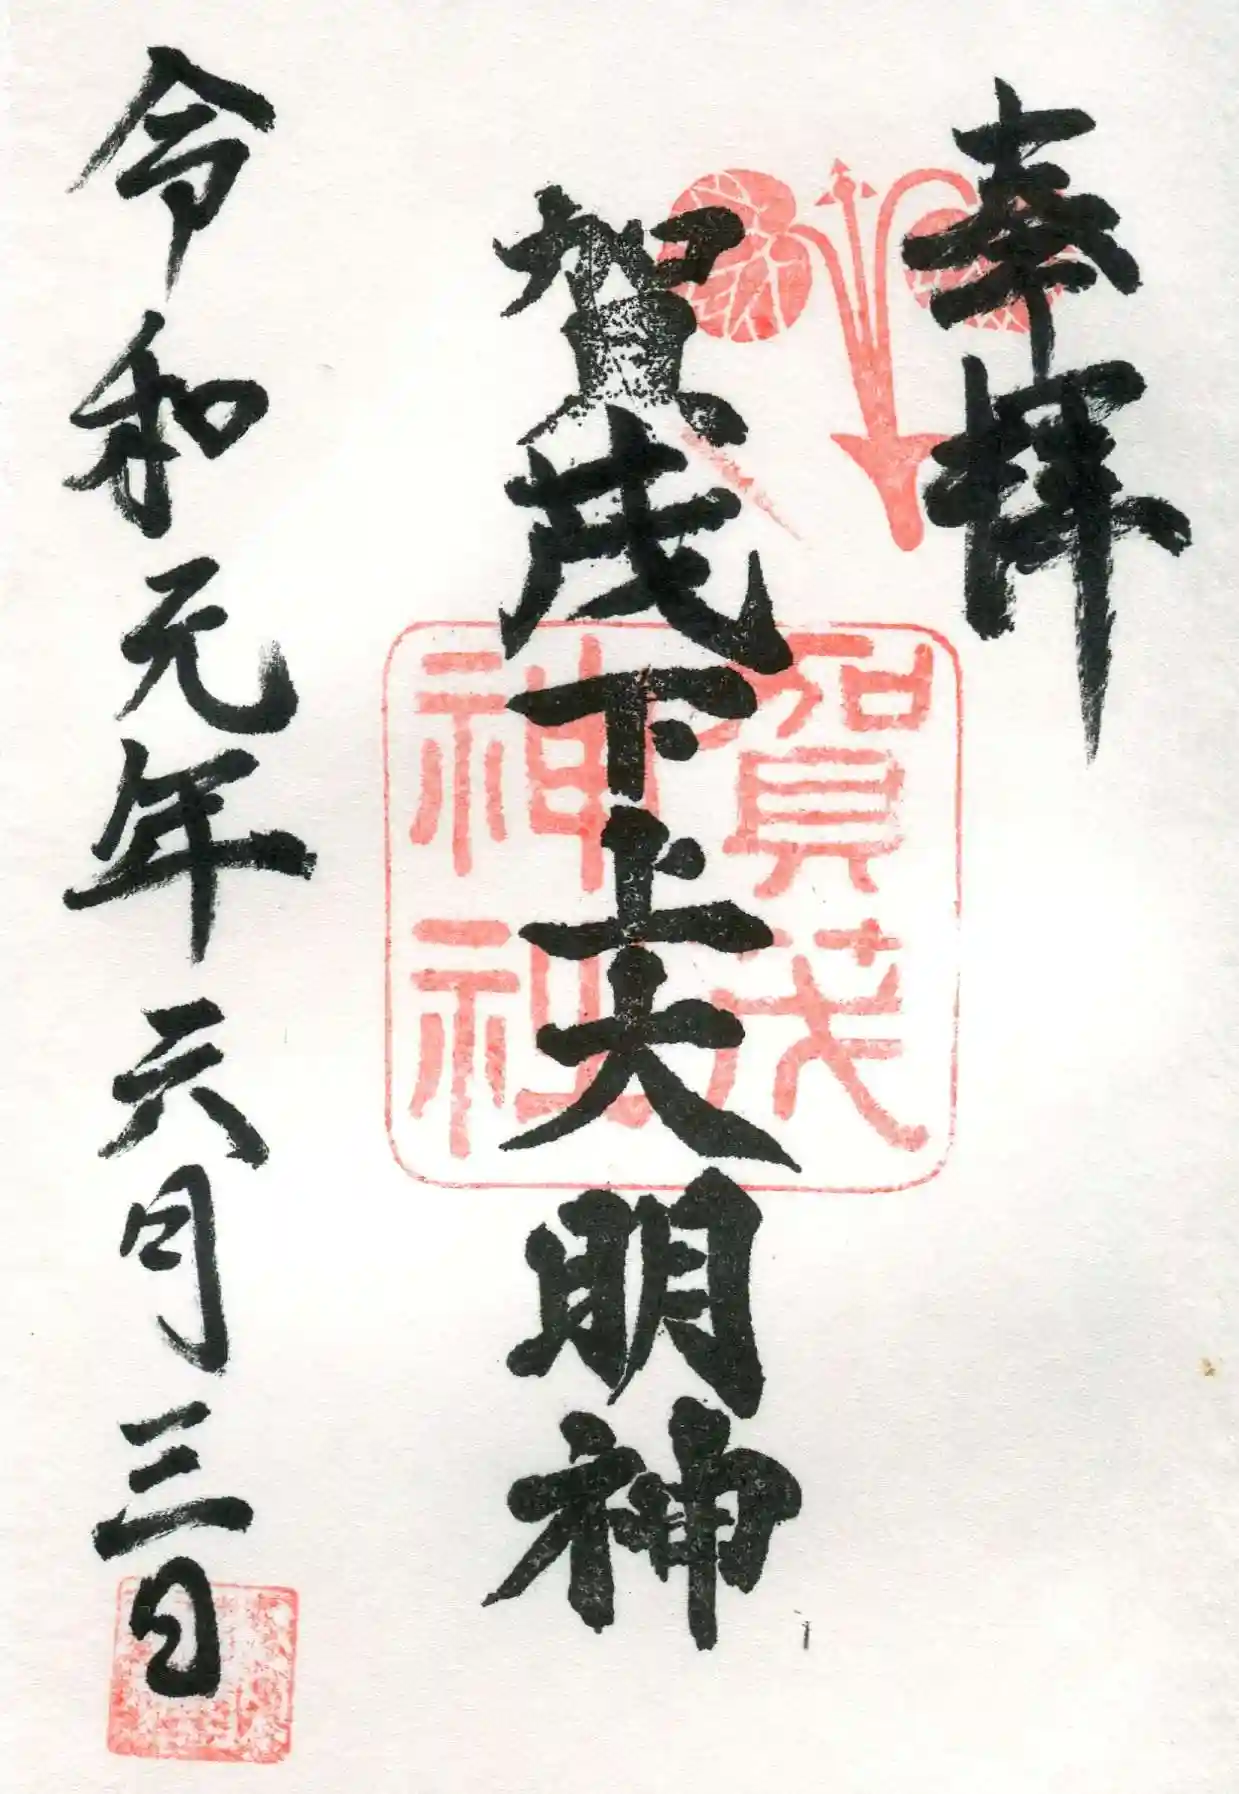 奉拝
賀茂下上大明神
賀茂
神社
令和元年六月三日